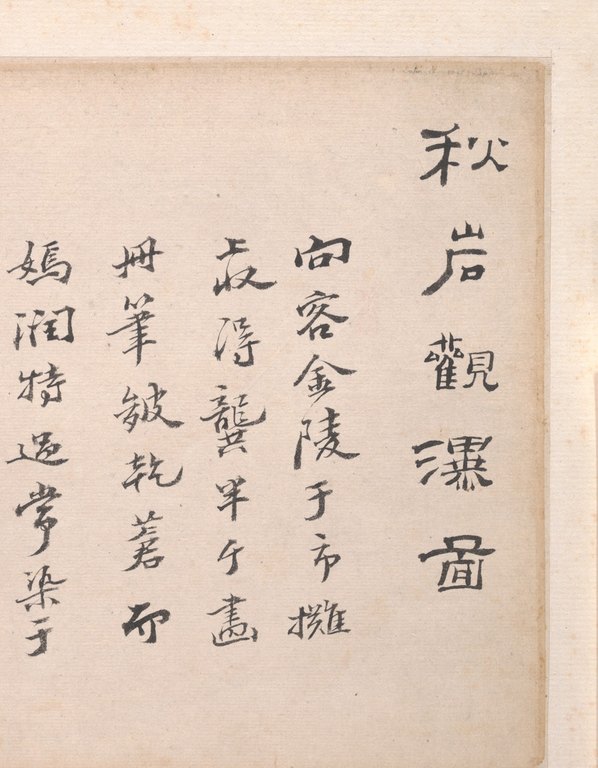 秋岩觀瀑圖
向客金陵于市攤
上收得龔半千畫
冊筆皴乾着而
嫣潤特過常染于